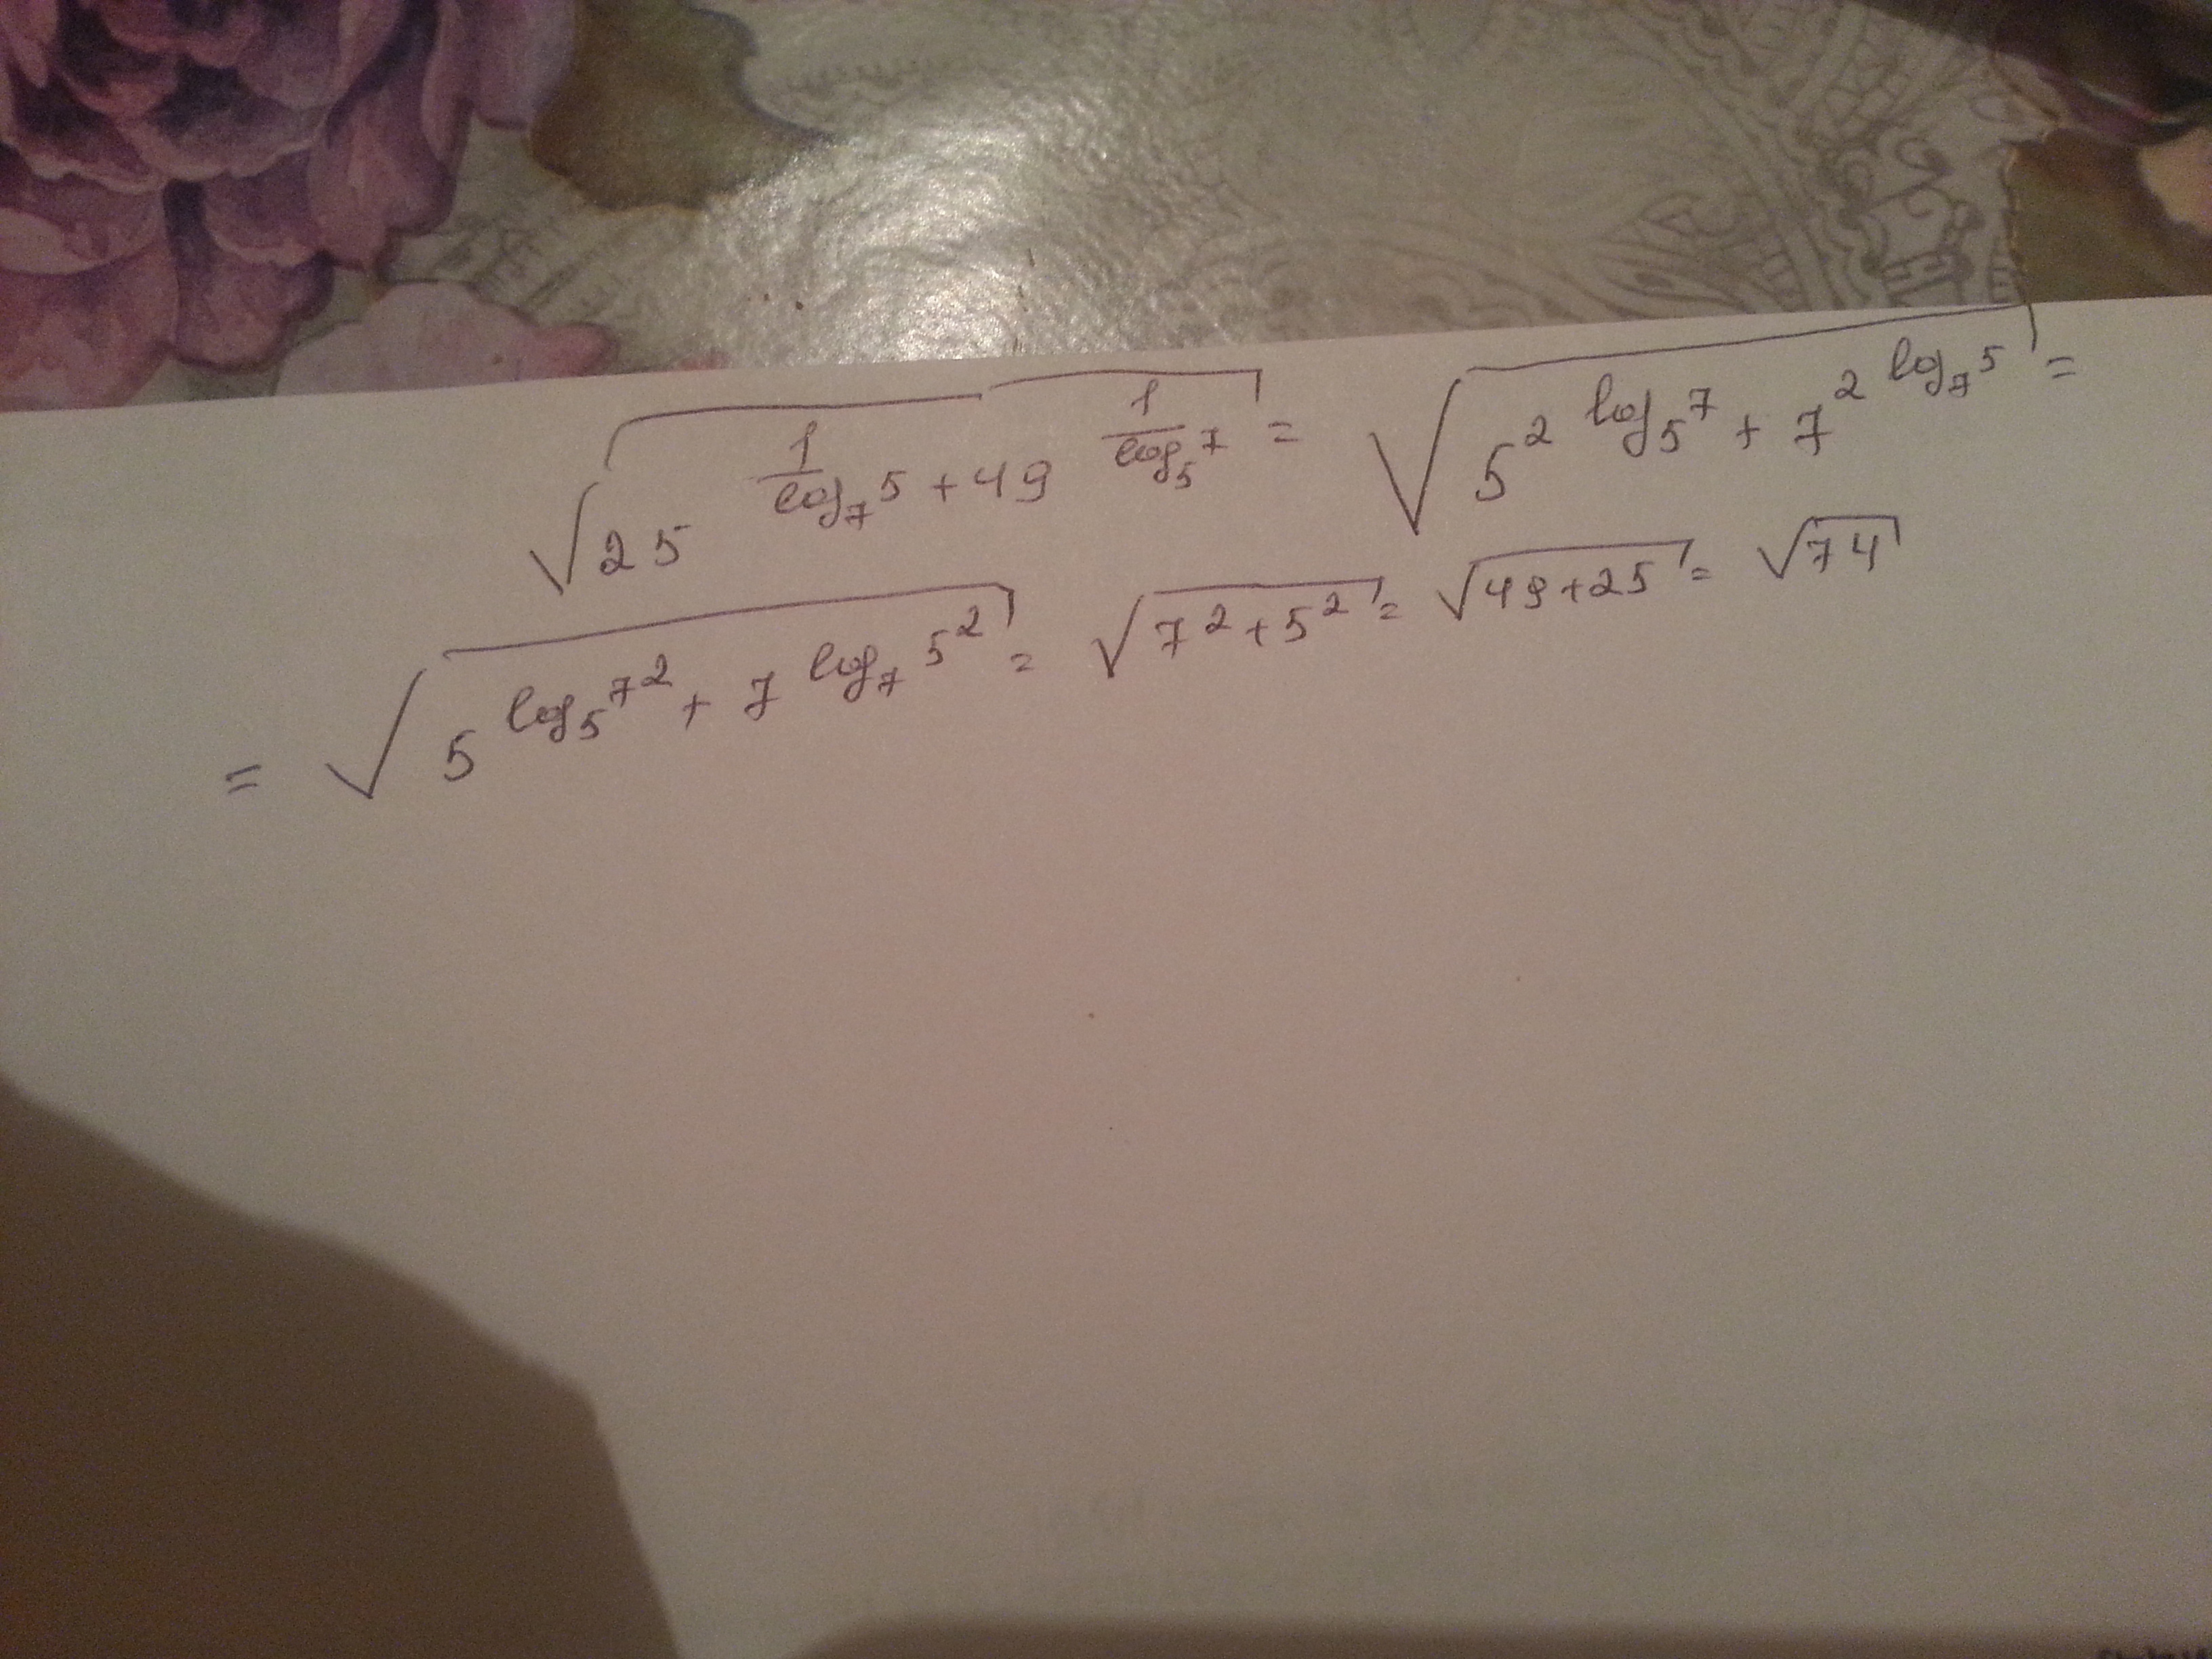 √(25^(1/log₇5) + 49^(1/log₅7)) = √(5^(2 log₅7) + 7^(2 log₇5)) =
= √(5^(log₅7²) + 7^(log₇5²)) = √(7² + 5²) = √(49 + 25) = √74